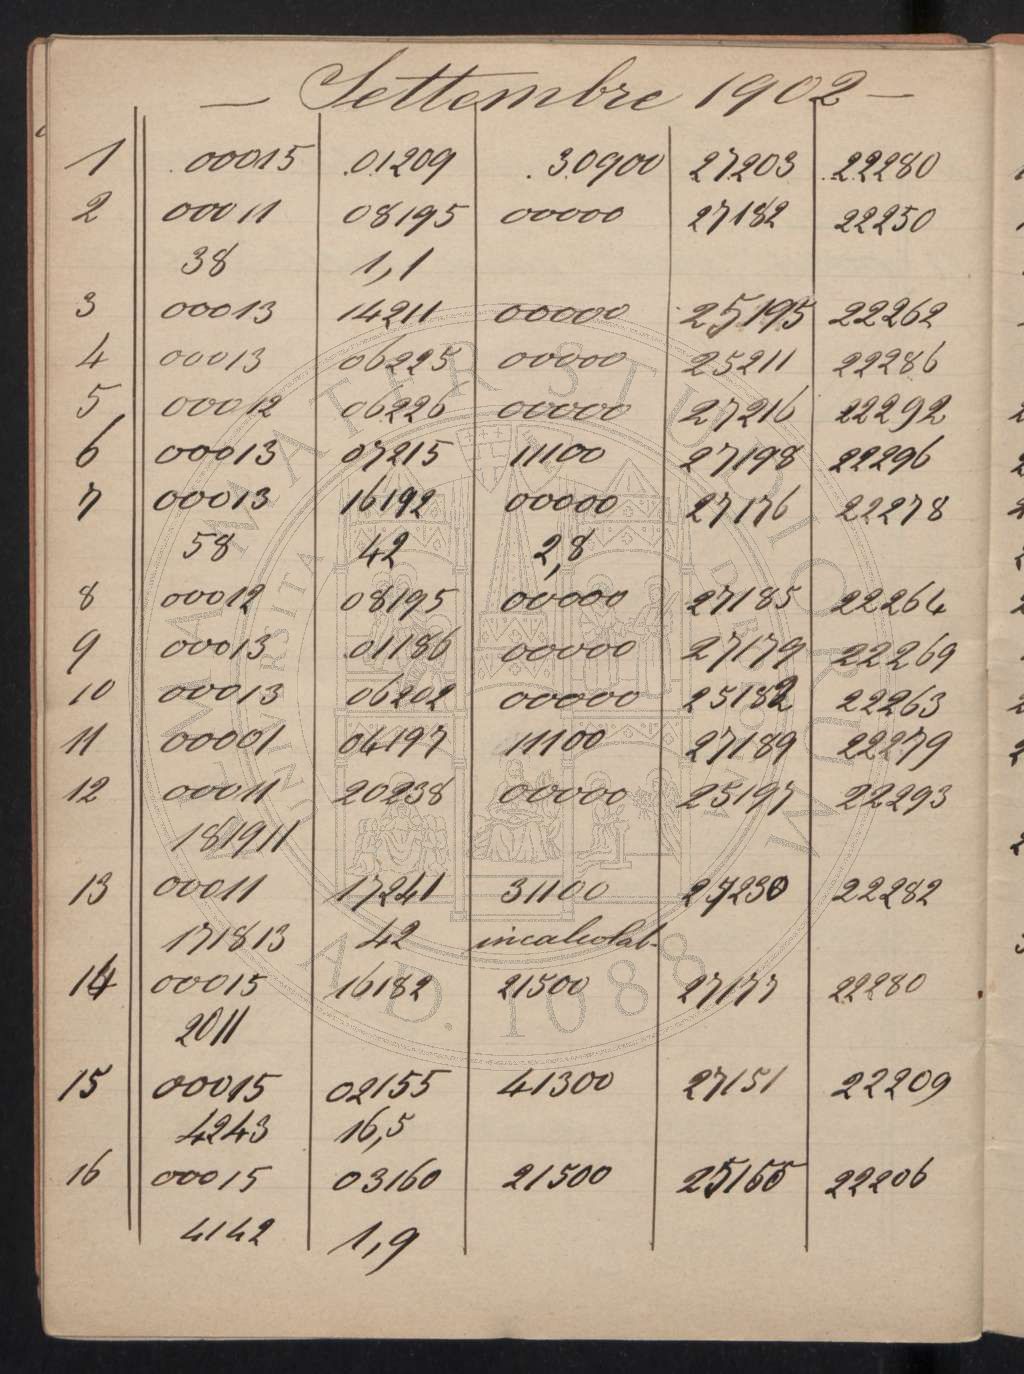 — Settembre 1902 —
1 00015 01209 30900 27203 22280
2 00011 08195 00000 27182 22250
38 1,1
3 00013 14211 00000 25195 22262
4 00013 06225 00000 25211 22286
5 00012 06226 00000 27216 22292
6 00013 07215 11100 27198 22296
7 00013 16192 00000 27176 22278
58 42 2,8
8 00012 08195 00000 27185 22264
9 00013 01186 00000 27179 22269
10 00013 06202 00000 25182 22263
11 00001 04197 11100 27189 22279
12 00011 20238 00000 25197 22293
181911
13 00011 17241 31100 27230 22282
171813 42 incalcolab-
14 00015 16182 21500 27177 22280
2011
15 00015 02155 41300 27151 22209
4243 16,5
16 00015 03160 21500 25165 22206
4142 1,9
ALMA MATER STUDIORUM
UNIVERSITÀ DI BOLOGNA
A.D. 1088